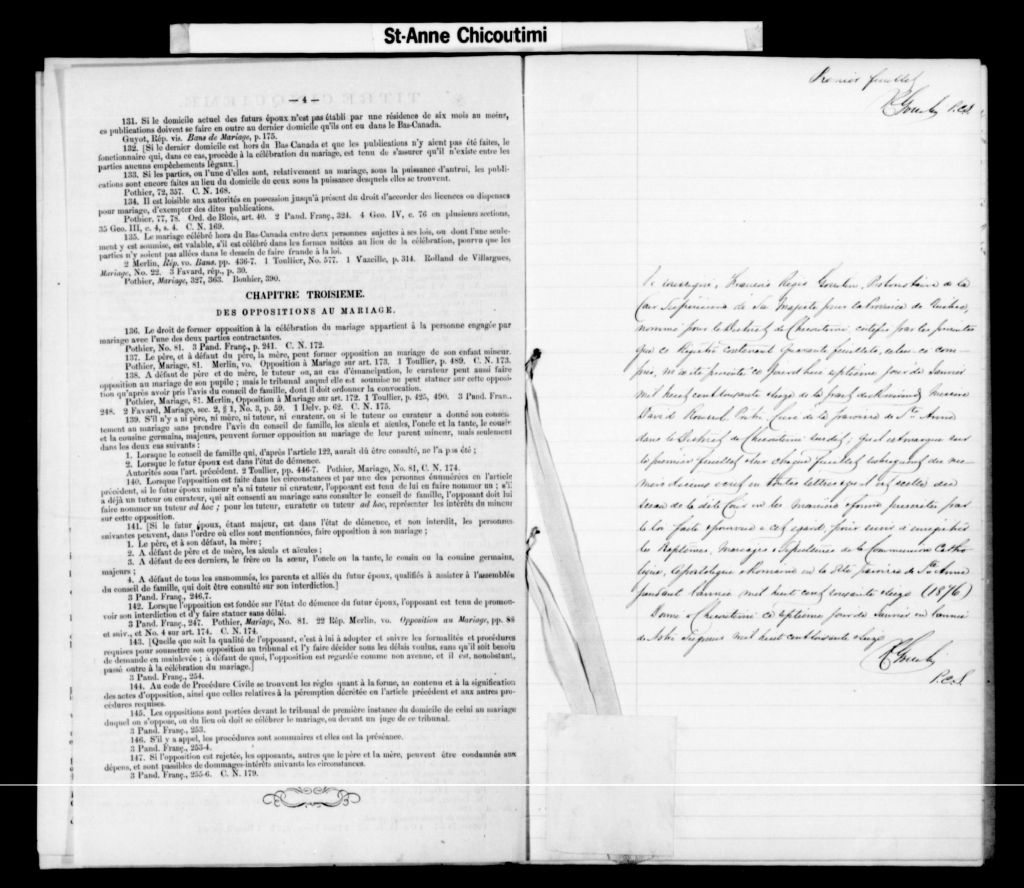 St-Anne Chicoutimi
— 4 —
131. Si le domicile actuel des futurs époux n'est pas établi par une résidence de six mois au moins,
es publications doivent se faire en outre au dernier domicile qu'ils ont eu dans le Bas-Canada.
Guyot, Rép. vis. Bans de Mariage, p. 175.
132. [Si le dernier domicile est hors du Bas-Canada et que les publications n'y aient pas été faites, le
fonctionnaire qui, dans ce cas, procède à la célébration du mariage, est tenu de s'assurer qu'il n'existe entre les
parties aucuns empêchements légaux.]
133. Si les parties, ou l'une d'elles, sont, relativement au mariage, sous la puissance d'autrui, les publi-
cations sont encore faites au lieu du domicile de ceux sous la puissance desquels elles se trouvent.
Pothier, 72, 357. C. N. 168.
134. Il est loisible aux autorités en possession jusqu'à présent du droit d'accorder des licences ou dispenses
pour mariage, d'exempter des dites publications.
Pothier, 77, 78. Ord. de Blois, art. 40. 2 Pand. Franç., 324. 4 Geo. IV, c. 76 en plusieurs sections,
35 Geo. III, c. 4, s. 4. C. N. 169.
135. Le mariage célébré hors du Bas-Canada entre deux personnes sujettes à ses lois, ou dont l'une seule-
ment y est soumise, est valable, s'il est célébré dans les formes usitées au lieu de la célébration, pourvu que les
parties n'y soient pas allées dans le dessein de faire fraude à la loi.
2 Merlin, Rép. vo. Bans, pp. 436-7. 1 Toullier, No. 577. 1 Vazeille, p. 314. Rolland de Villargues,
Mariage, No. 22. 3 Favard, rép., p. 30.
Pothier, Mariage, 327, 363. Bouhier, 390.
CHAPITRE TROISIEME.
DES OPPOSITIONS AU MARIAGE.
136. Le droit de former opposition à la célébration du mariage appartient à la personne engagée par
mariage avec l'une des deux parties contractantes.
Pothier, No. 81. 3 Pand. Franç., p. 241. C. N. 172.
137. Le père, et à défaut du père, la mère, peut former opposition au mariage de son enfant mineur.
Pothier, Mariage, 81. Merlin, vo. Opposition à Mariage sur art. 173. 1 Toullier, p. 489. C. N. 173.
138. A défaut de père et de mère, le tuteur ou, au cas d'émancipation, le curateur peut aussi faire
opposition au mariage de son pupile ; mais le tribunal auquel elle est soumise ne peut statuer sur cette opposi-
tion qu'après avoir pris l'avis du conseil de famille, dont il doit ordonner la convocation.
Pothier, Mariage, 81. Merlin, Opposition à Mariage sur art. 172. 1 Toullier, p. 425, 490. 3 Pand. Fran.,
248. 2 Favard, Mariage, sec. 2, § 1, No. 3, p. 59. 1 Delv. p. 62. C. N. 175.
139. S'il n'y a ni père, ni mère, ni tuteur, ni curateur, ou si le tuteur ou curateur a donné son consen-
tement au mariage sans prendre l'avis du conseil de famille, les aïeuls et aïeules, l'oncle et la tante, le cousin
et la cousine germains, majeurs, peuvent former opposition au mariage de leur parent mineur, mais seulement
dans les deux cas suivants :
1. Lorsque le conseil de famille qui, d'après l'article 122, aurait dû être consulté, ne l'a pas été ;
2. Lorsque le futur époux est dans l'état de démence.
Autorités sous l'art. précédent. 2 Toullier, pp. 446-7. Pothier, Mariage, No. 81, C. N. 174.
140. Lorsque l'opposition est faite dans les circonstances et par une des personnes énumérées en l'article
précédent, si le futur époux mineur n'a ni tuteur ni curateur, l'opposant est tenu de lui en faire nommer un ; s'il
a déjà un tuteur ou curateur, qui ait consenti au mariage sans consulter le conseil de famille, l'opposant doit lui
faire nommer un tuteur ad hoc ; pour les tuteur, curateur ou tuteur ad hoc, représenter les intérêts du mineur
sur cette opposition.
141. [Si le futur époux, étant majeur, est dans l'état de démence, et non interdit, les personnes
suivantes peuvent, dans l'ordre où elles sont mentionnées, faire opposition à son mariage ;
1. Le père, et à son défaut, la mère ;
2. A défaut de père et de mère, les aïeuls et aïeules ;
3. A défaut de ces derniers, le frère ou la sœur, l'oncle ou la tante, le cousin ou la cousine germains,
majeurs ;
4. A défaut de tous les susnommés, les parents et alliés du futur époux, qualifiés à assister à l'assemblée
du conseil de famille, qui doit être consulté sur son interdiction.]
3 Pand. Franç., 246,7.
142. Lorsque l'opposition est fondée sur l'état de démence du futur époux, l'opposant est tenu de promou-
voir son interdiction et d'y faire statuer sans délai.
3 Pand. Franç., 247. Pothier, Mariage, No. 81. 22 Rép. Merlin, vo. Opposition au Mariage, pp. 88
et suiv., et No. 4 sur art. 174. C. N. 174.
143. [Quelle que soit la qualité de l'opposant, c'est à lui à adopter et suivre les formalités et procédures
requises pour soumettre son opposition au tribunal et l'y faire décider sous les délais voulus, sans qu'il soit besoin
de demande en mainlevée ; à défaut de quoi, l'opposition est regardée comme non avenue, et il est, nonobstant,
passé outre à la célébration du mariage.]
3 Pand. Franç., 254.
144. Au code de Procédure Civile se trouvent les règles quant à la forme, au contenu et à la signification
des actes d'opposition, ainsi que celles relatives à la péremption décrétée en l'article précédent et aux autres pro-
cédures requises.
145. Les oppositions sont portées devant le tribunal de première instance du domicile de celui au mariage
duquel on s'oppose, ou du lieu où doit se célébrer le mariage, ou devant un juge de ce tribunal.
3 Pand. Franç., 253.
146. S'il y a appel, les procédures sont sommaires et elles ont la préséance.
3 Pand. Franç., 253-4.
147. Si l'opposition est rejetée, les opposants, autres que le père et la mère, peuvent être condamnés aux
dépens, et sont passibles de dommages-intérêts suivants les circonstances.
3 Pand. Franç., 255-6. C. N. 179.
Premier feuillet
P.C.S.
Je soussigné, François Régis Gosselin, Protonotaire de la
Cour Supérieure de Sa Majesté pour la Province de Québec,
nommé pour le District de Chicoutimi, certifie par les présentes
que ce Registre contenant quarante feuillets, celui-ce com-
pris, m'a été présenté ce jourd'hui septième jour de Janvier
mil huit cent soixante seize de la part du Révérend Messire
David Roussel Ptre. Curé de la paroisse de Ste Anne
dans le District de Chicoutimi susdit; qu'il est marqué sur
le premier feuillet & sur chaque feuillet subséquent du nu-
méro d'icelui écrit en toutes lettres & qu'il est scellé du
sceau de la dite Cour en la manière & forme prescrites par
la loi faite & pourvue à cet égard, pour servir à enregistrer
les Baptêmes, Mariages & Sépultures de la Communion Catho-
lique, Apostolique & Romaine en la dite paroisse de Ste Anne
pendant l'année mil huit cent soixante seize (1876)
Donné à Chicoutimi ce septième jour de Janvier en l'année
de Notre Seigneur mil huit cent soixante seize
P.C.S.